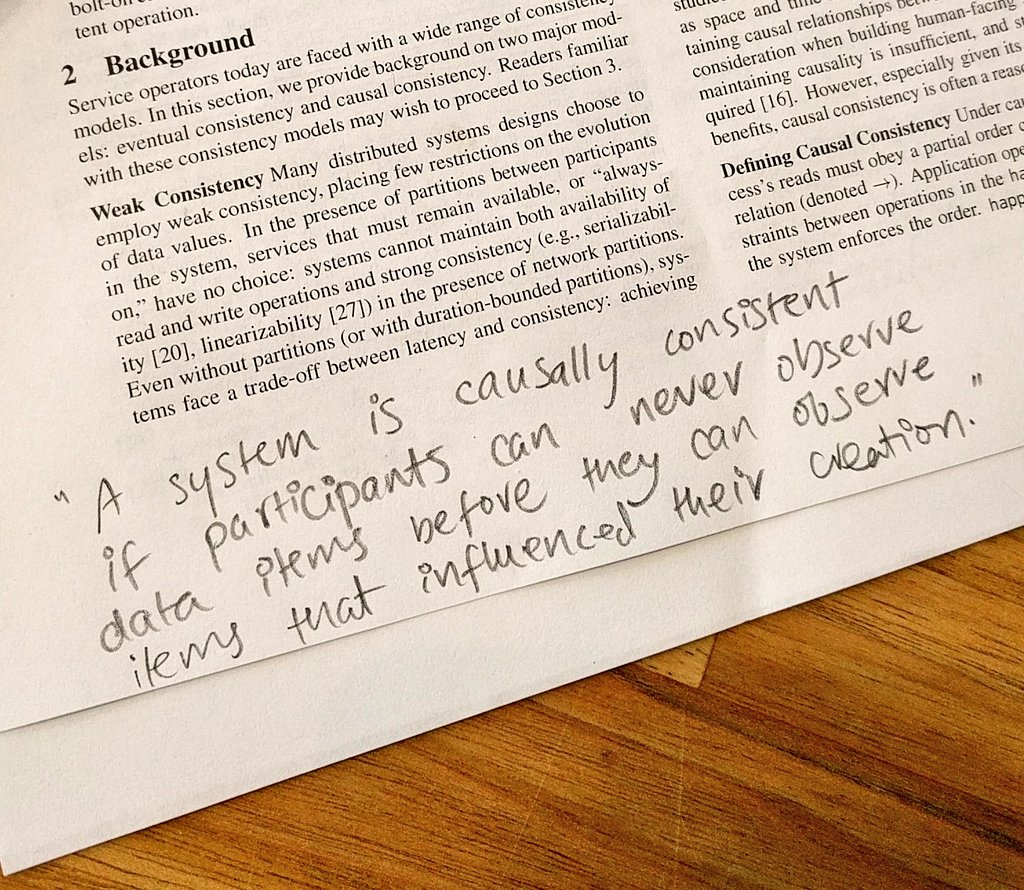 bolt-on
tent operation.
2 Background
Service operators today are faced with a wide range of consistency
models. In this section, we provide background on two major mod-
els: eventual consistency and causal consistency. Readers familiar
with these consistency models may wish to proceed to Section 3.
Weak Consistency Many distributed systems designs choose to
employ weak consistency, placing few restrictions on the evolution
of data values. In the presence of partitions between participants
in the system, services that must remain available, or “always-
on,” have no choice: systems cannot maintain both availability of
read and write operations and strong consistency (e.g., serializabil-
ity [20], linearizability [27]) in the presence of network partitions.
Even without partitions (or with duration-bounded partitions), sys-
tems face a trade-off between latency and consistency: achieving
as space and
taining causal relationships
consideration when building human-facing
maintaining causality is insufficient, and
quired [16]. However, especially given its
benefits, causal consistency is often a
Defining Causal Consistency Under
cess’s reads must obey a partial order
relation (denoted →). Application
straints between operations in the
the system enforces the order.
"A system is causally consistent
if participants can never observe
data items before they can observe
items that influenced their creation."